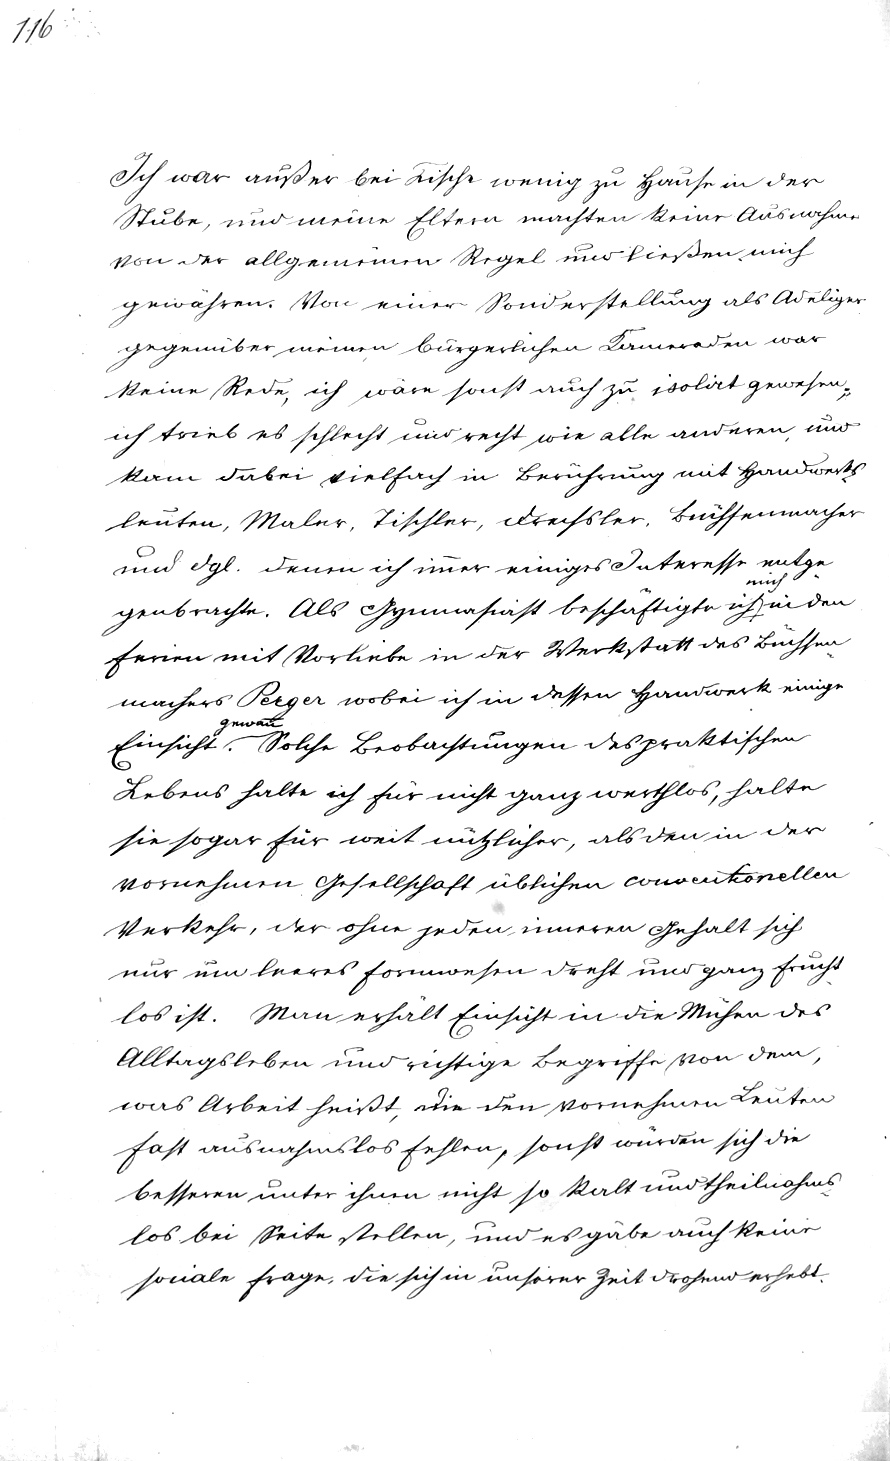 116
Ich war außer bei Tische wenig zu Hause in der
Stube, und meine Eltern machten keine Ausnahme
von der allgemeinen Regel und ließen mich
gewähren. Von einer Sonderstellung als Adeliger
gegenüber meinen bürgerlichen Kameraden war
keine Rede, ich wäre sonst auch zu isolirt gewesen;
ich trieb es schlecht und recht wie alle anderen, und
kam dabei vielfach in Berührung mit Handwerks-
leuten, Maler, Tischler, Drechsler, Büchsenmacher
und dgl. denen ich im̄er einiges Interesse entge-
mich
genbrachte. Als Gymnasiast beschäftigte ich in den
Ferien mit Vorliebe in der Werkstatt des Büchsen-
machers Perger wobei ich in dessen Handwerk einige
gewan̄
Einsicht. Solche Beobachtungen des praktischen
Lebens halte ich für nicht ganz werthlos, halte
sie sogar für weit nützlicher, als den in der
vornehmen Gesellschaft üblichen conventionellen
Verkehr, der ohne jeden inneren Gehalt sich
nur um leeres Formwesen dreht und ganz frucht-
los ist. Man erhält Einsicht in die Mühen des
Alltagsleben und richtige Begriffe von dem,
was Arbeit heißt, die den vornehmen Leuten
fast ausnahmslos fehlen, sonst würden sich die
besseren unter ihnen nicht so kalt und theilnahms-
los bei Seite stellen, und es gäbe auch keine
sociale Frage, die sich in unserer Zeit drohend erhebt.